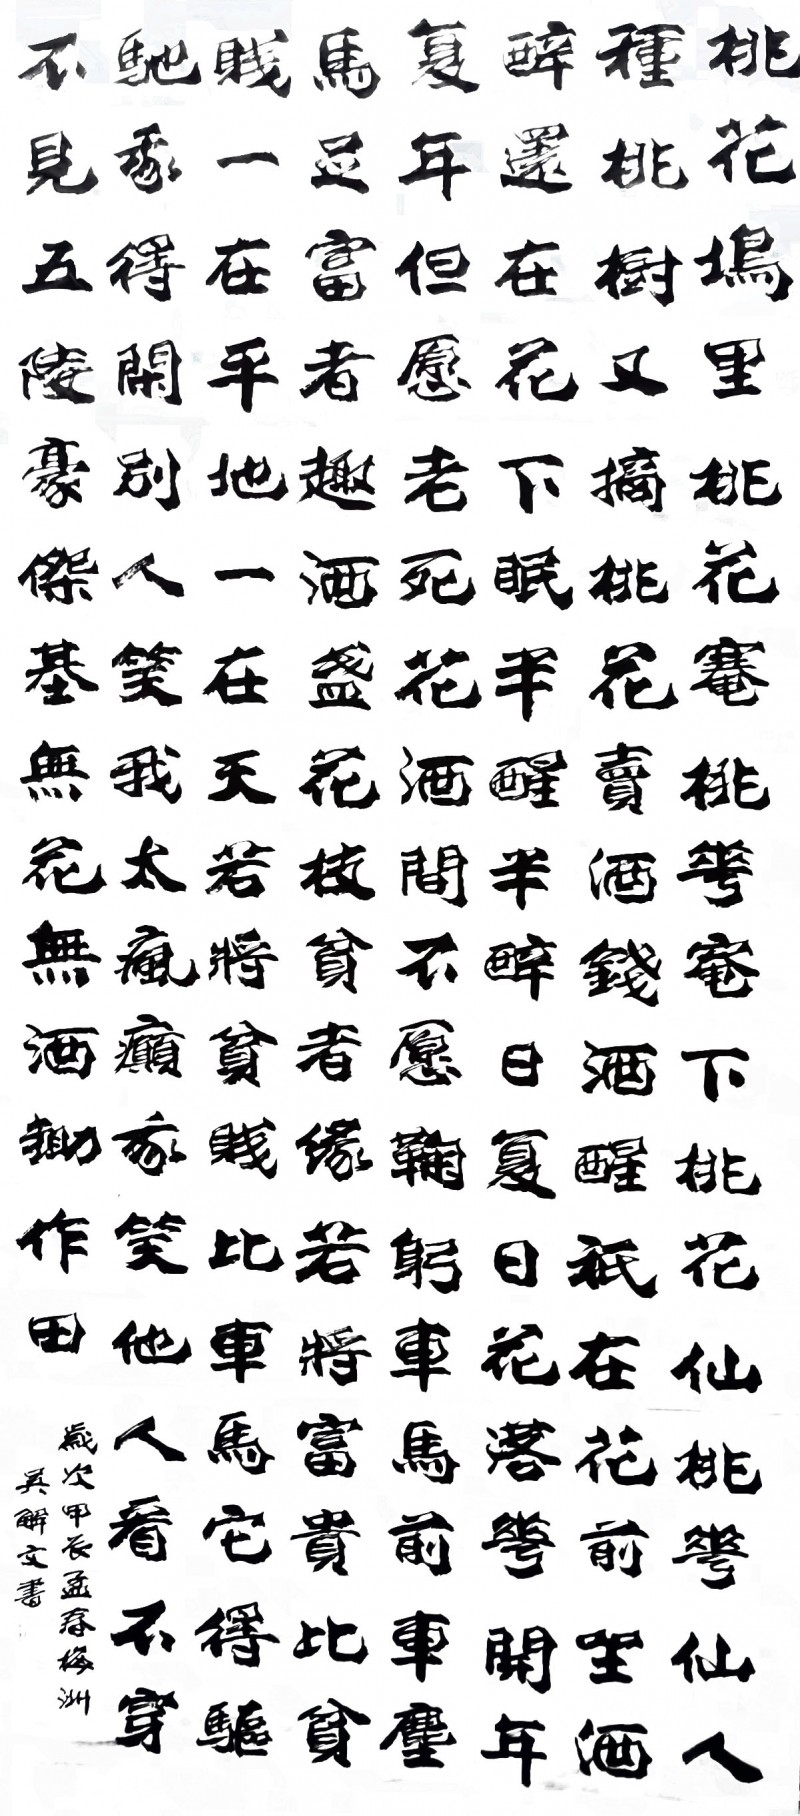 桃花塢里桃花菴桃華庵下桃花仙桃華仙人
種桃樹又摘桃花賣酒錢酒醒祇在花前坐酒
醉還在花下眠半醒半醉日复日花落華開年
复年但愿老死花酒間不愿鞠躬車馬前車塵
馬足富者趣酒盞花枝貧者緣若將富貴比貧
賤一在平地一在天若將貧賤比車馬它得驅
馳我得閑別人笑我太瘋癲我笑他人看不穿
不見五陵豪傑基無花無酒鋤作田
歲次甲辰孟春梅洲
吳解文書